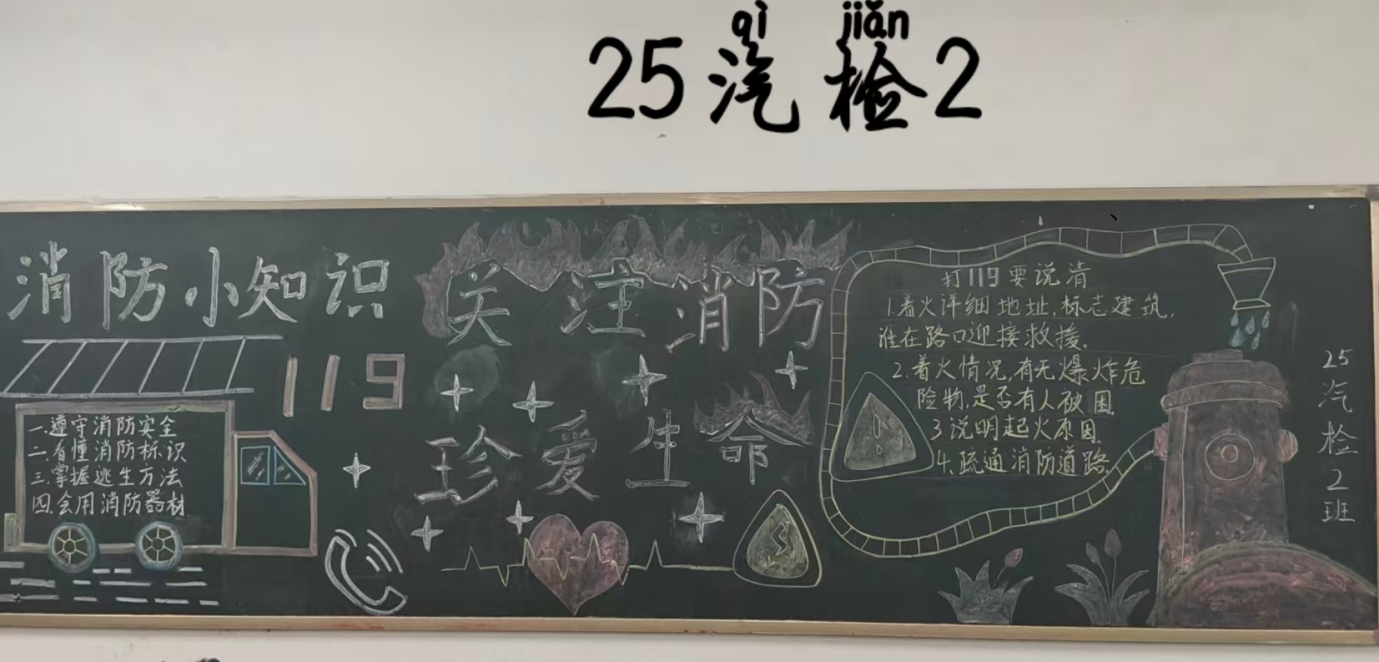 qì jiǎn
25汽检2
消防小知识
119
一.遵守消防安全
二.看懂消防标识
三.掌握逃生方法
四.会用消防器材
关注消防
珍爱生命
打119要说清
1.着火详细地址,标志建筑,
准在路口迎接救援.
2.着火情况,有无爆炸危
险物,是否有人被困.
3说明起火原因.
4.疏通消防道路.
25汽检2班